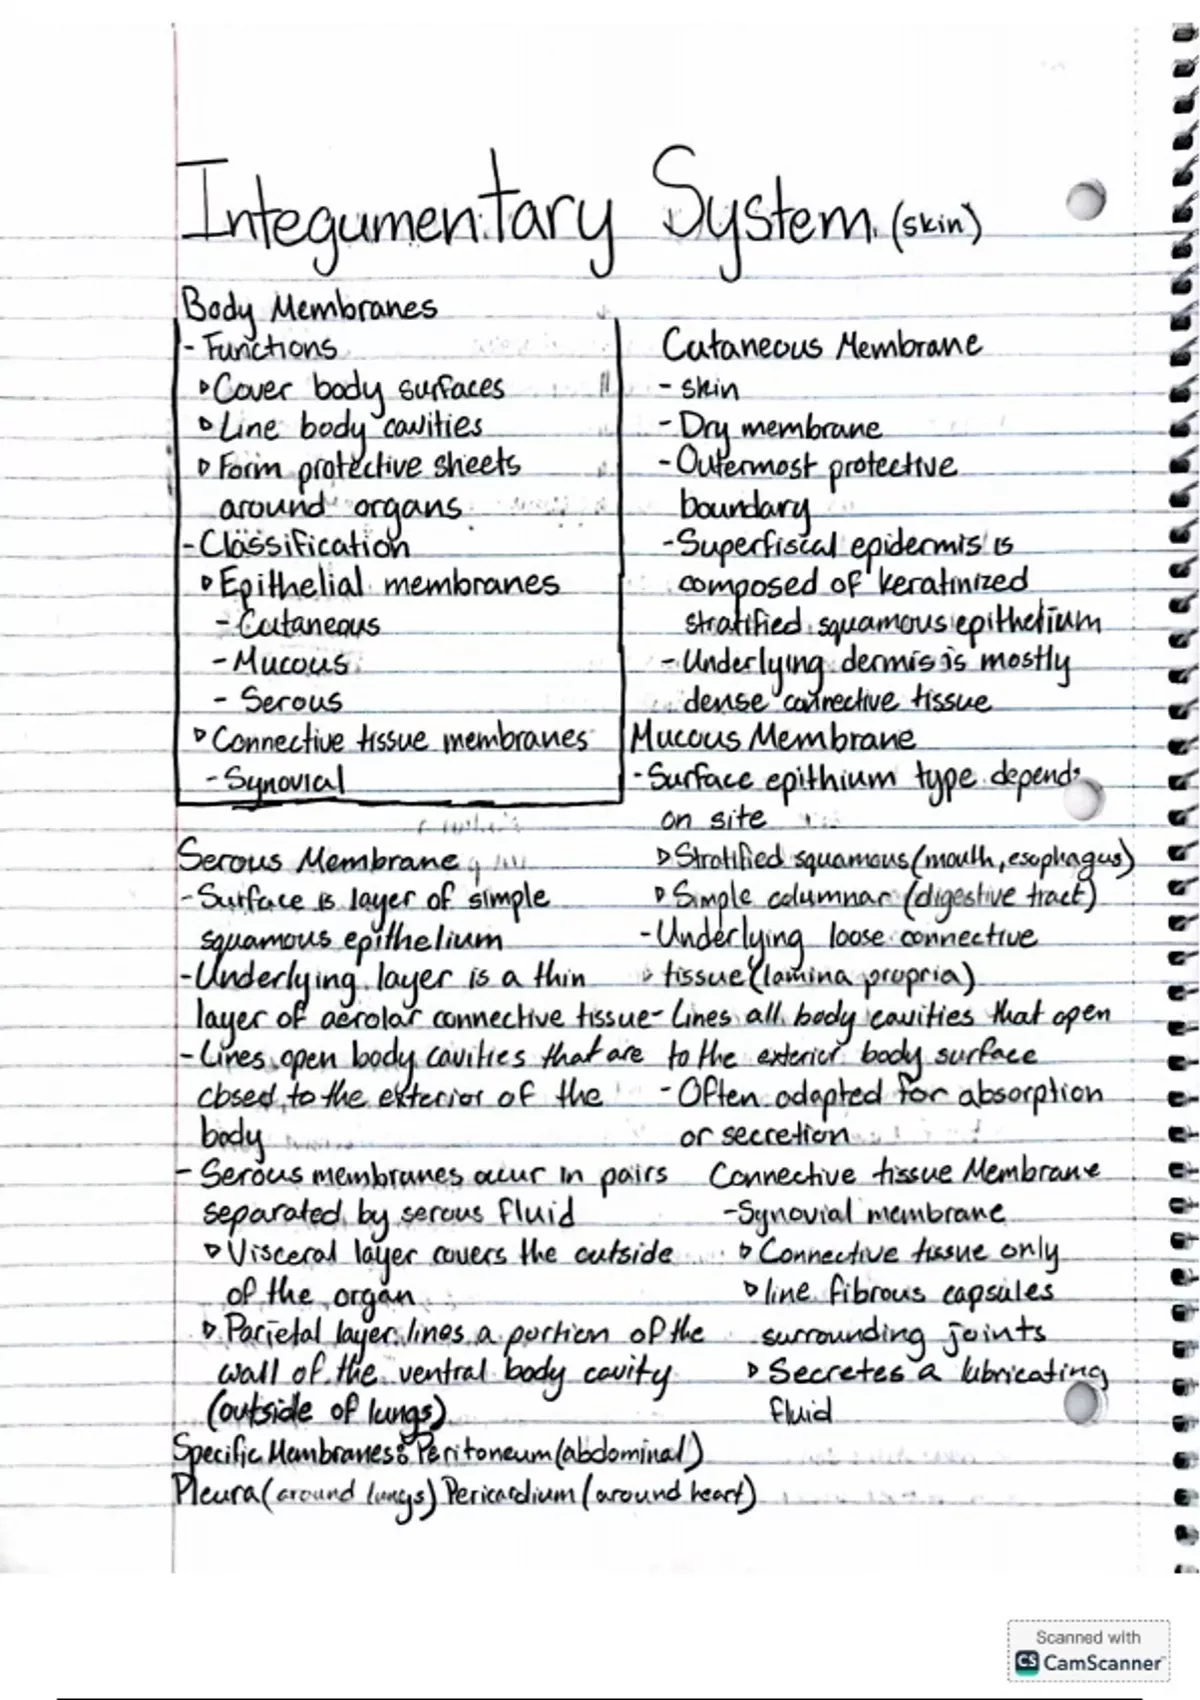 Integumentary System (skin)
Body Membranes
- Functions
▹ Cover body surfaces
▹ Line body cavities
▹ Form protective sheets
around organs
- Classification
▹ Epithelial membranes
- Cutaneous
- Mucous
- Serous
▹ Connective tissue membranes
- Synovial
Cutaneous Membrane
- skin
- Dry membrane
- Outermost protective
boundary
- Superfiscal epidermis is
composed of keratinized
stratified squamous epithelium
- Underlying dermis is mostly
dense connective tissue
Mucous Membrane
- Surface epithium type depends
on site
▹ Stratified squamous (mouth, esophagus)
▹ Simple columnar (digestive tract)
- Underlying loose connective
tissue (lamina propria)
- Lines all body cavities that open
to the exterior body surface
- Often adapted for absorption
or secretion
Serous Membrane
- Surface is layer of simple
squamous epithelium
- Underlying layer is a thin
layer of aerolar connective tissue
- Lines open body cavities that are
closed to the exterior of the
body
- Serous membranes occur in pairs
separated by serous fluid
▹ Visceral layer covers the outside
of the organ
▹ Parietal layer lines a portion of the
wall of the ventral body cavity
(outside of lungs)
Specific Membranes: Peritoneum (abdominal)
Pleura (around lungs) Pericardium (around heart)
Connective tissue Membrane
- Synovial membrane
▹ Connective tissue only
▹ line fibrous capsules
surrounding joints
▹ Secretes a lubricating
fluid
Scanned with
CS CamScanner